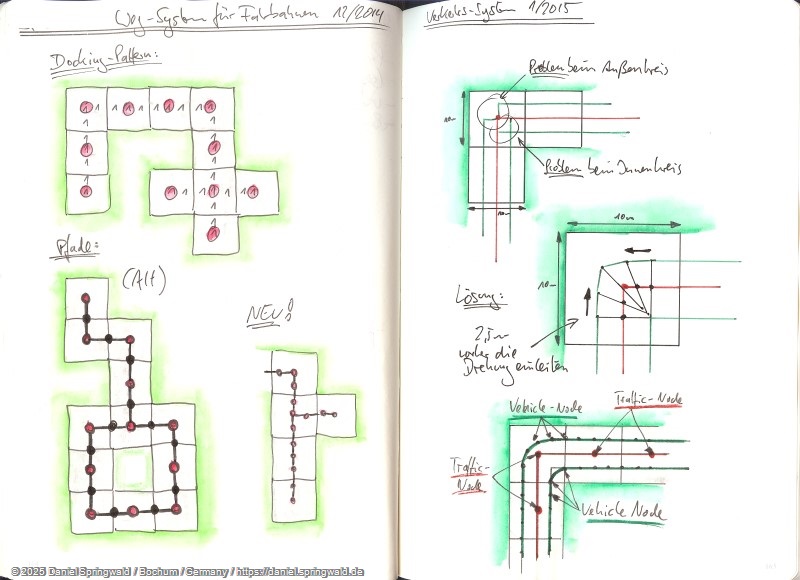 Weg-System für Fahrbahnen 12/2014
Docking-Pattern:
1 1 1 1 1 1 1 1
1 1
1 1
1 1
1 1 1 1 1 1
1
1
Pfade:
(Alt)
NEU!
Verkehrs-System 1/2015
Problem beim Außenkreis
10m
Problem beim Innenkreis
10m
10m
10m
Lösung:
2,5m
vorher die
Drehung einleiten
Vehicle-Node
Traffic-Node
Traffic-
Node
Vehicle Node
© 2025 Daniel Springwald / Bochum / Germany / https://daniel.springwald.de